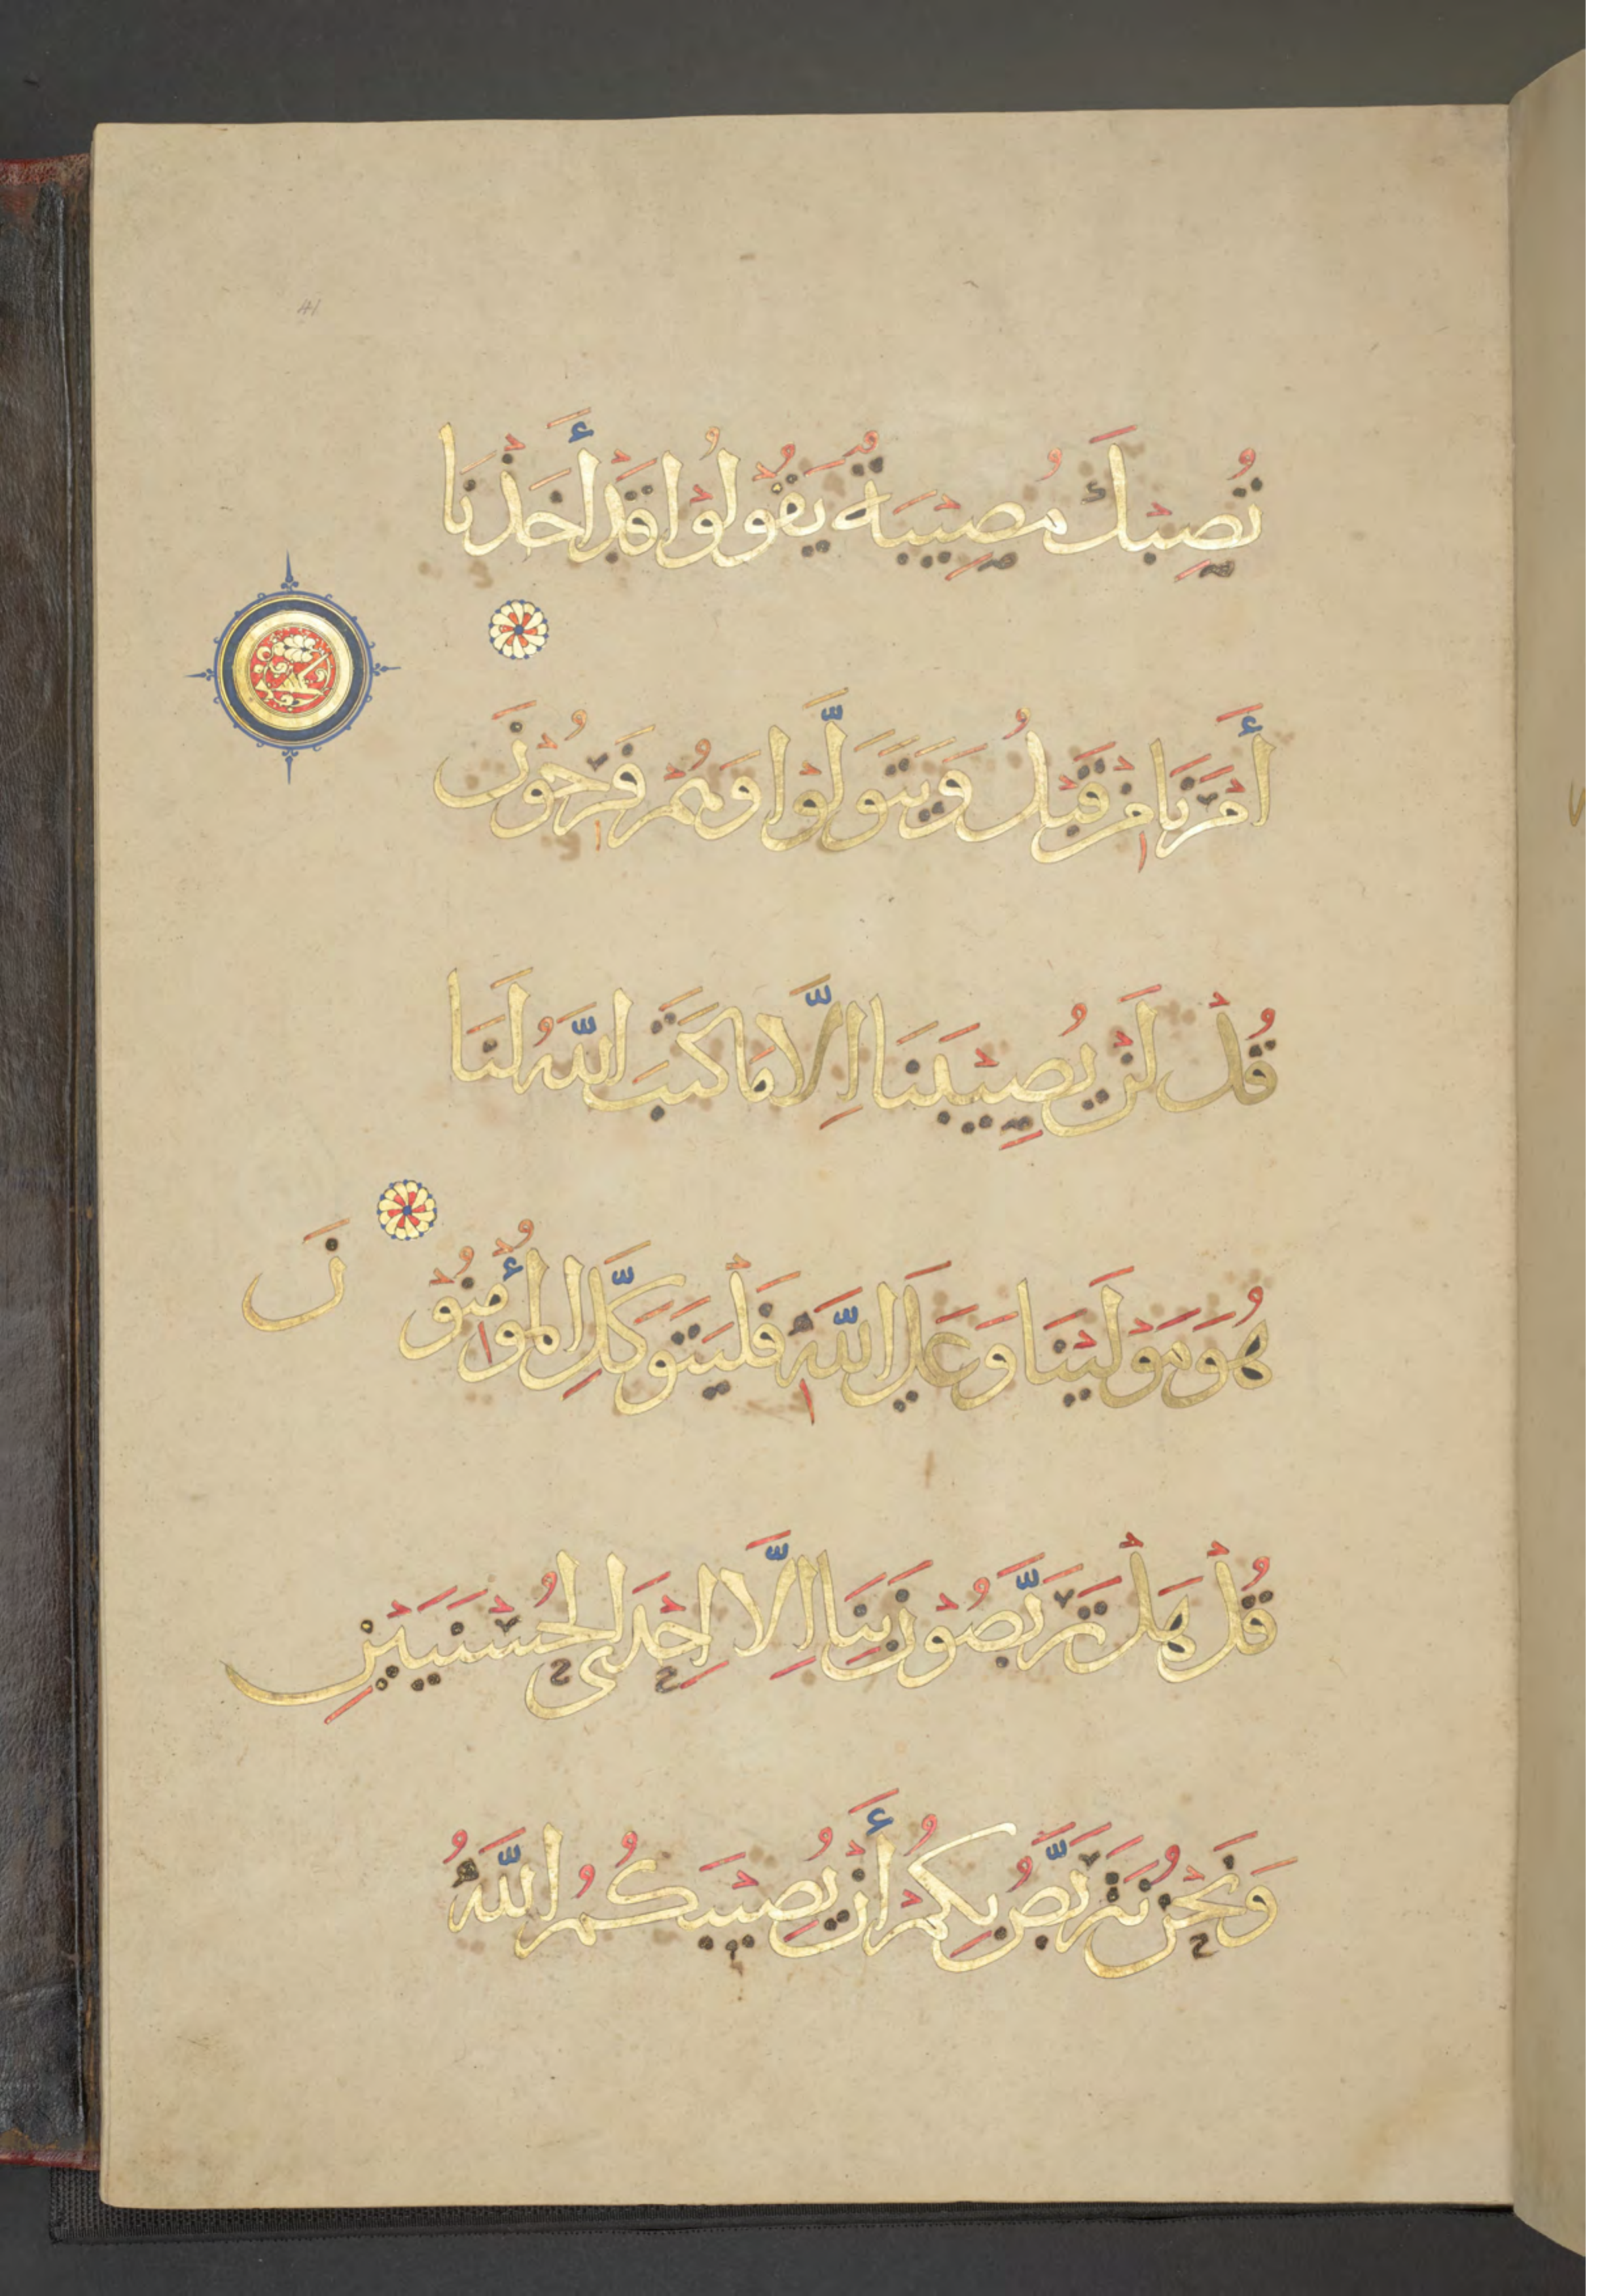 41
تُصِبْكَ مُصِيْبَةٌ يَقُوْلُوْا قَدْ أَخَذْنَا
أَمْرَنَا مِنْ قَبْلُ وَيَتَوَلَّوْا وَهُمْ فَرِحُوْنَ
قُلْ لَنْ يُصِيْبَنَا اِلَّا مَا كَتَبَ اللَّهُ لَنَا
هُوَ مَوْلَيْنَا وَعَلَي اللَّهِ فَلْيَتَوَكَّلِ الْمُؤْمِنُوْنَ
قُلْ هَلْ تَرَبَّصُوْنَ بِنَا اِلَّا اِحْدَى الْحُسْنَيَيْنِ
وَنَحْنُ نَتَرَبَّصُ بِكُمْ أَنْ يُصِيْبَكُمُ اللَّهُ